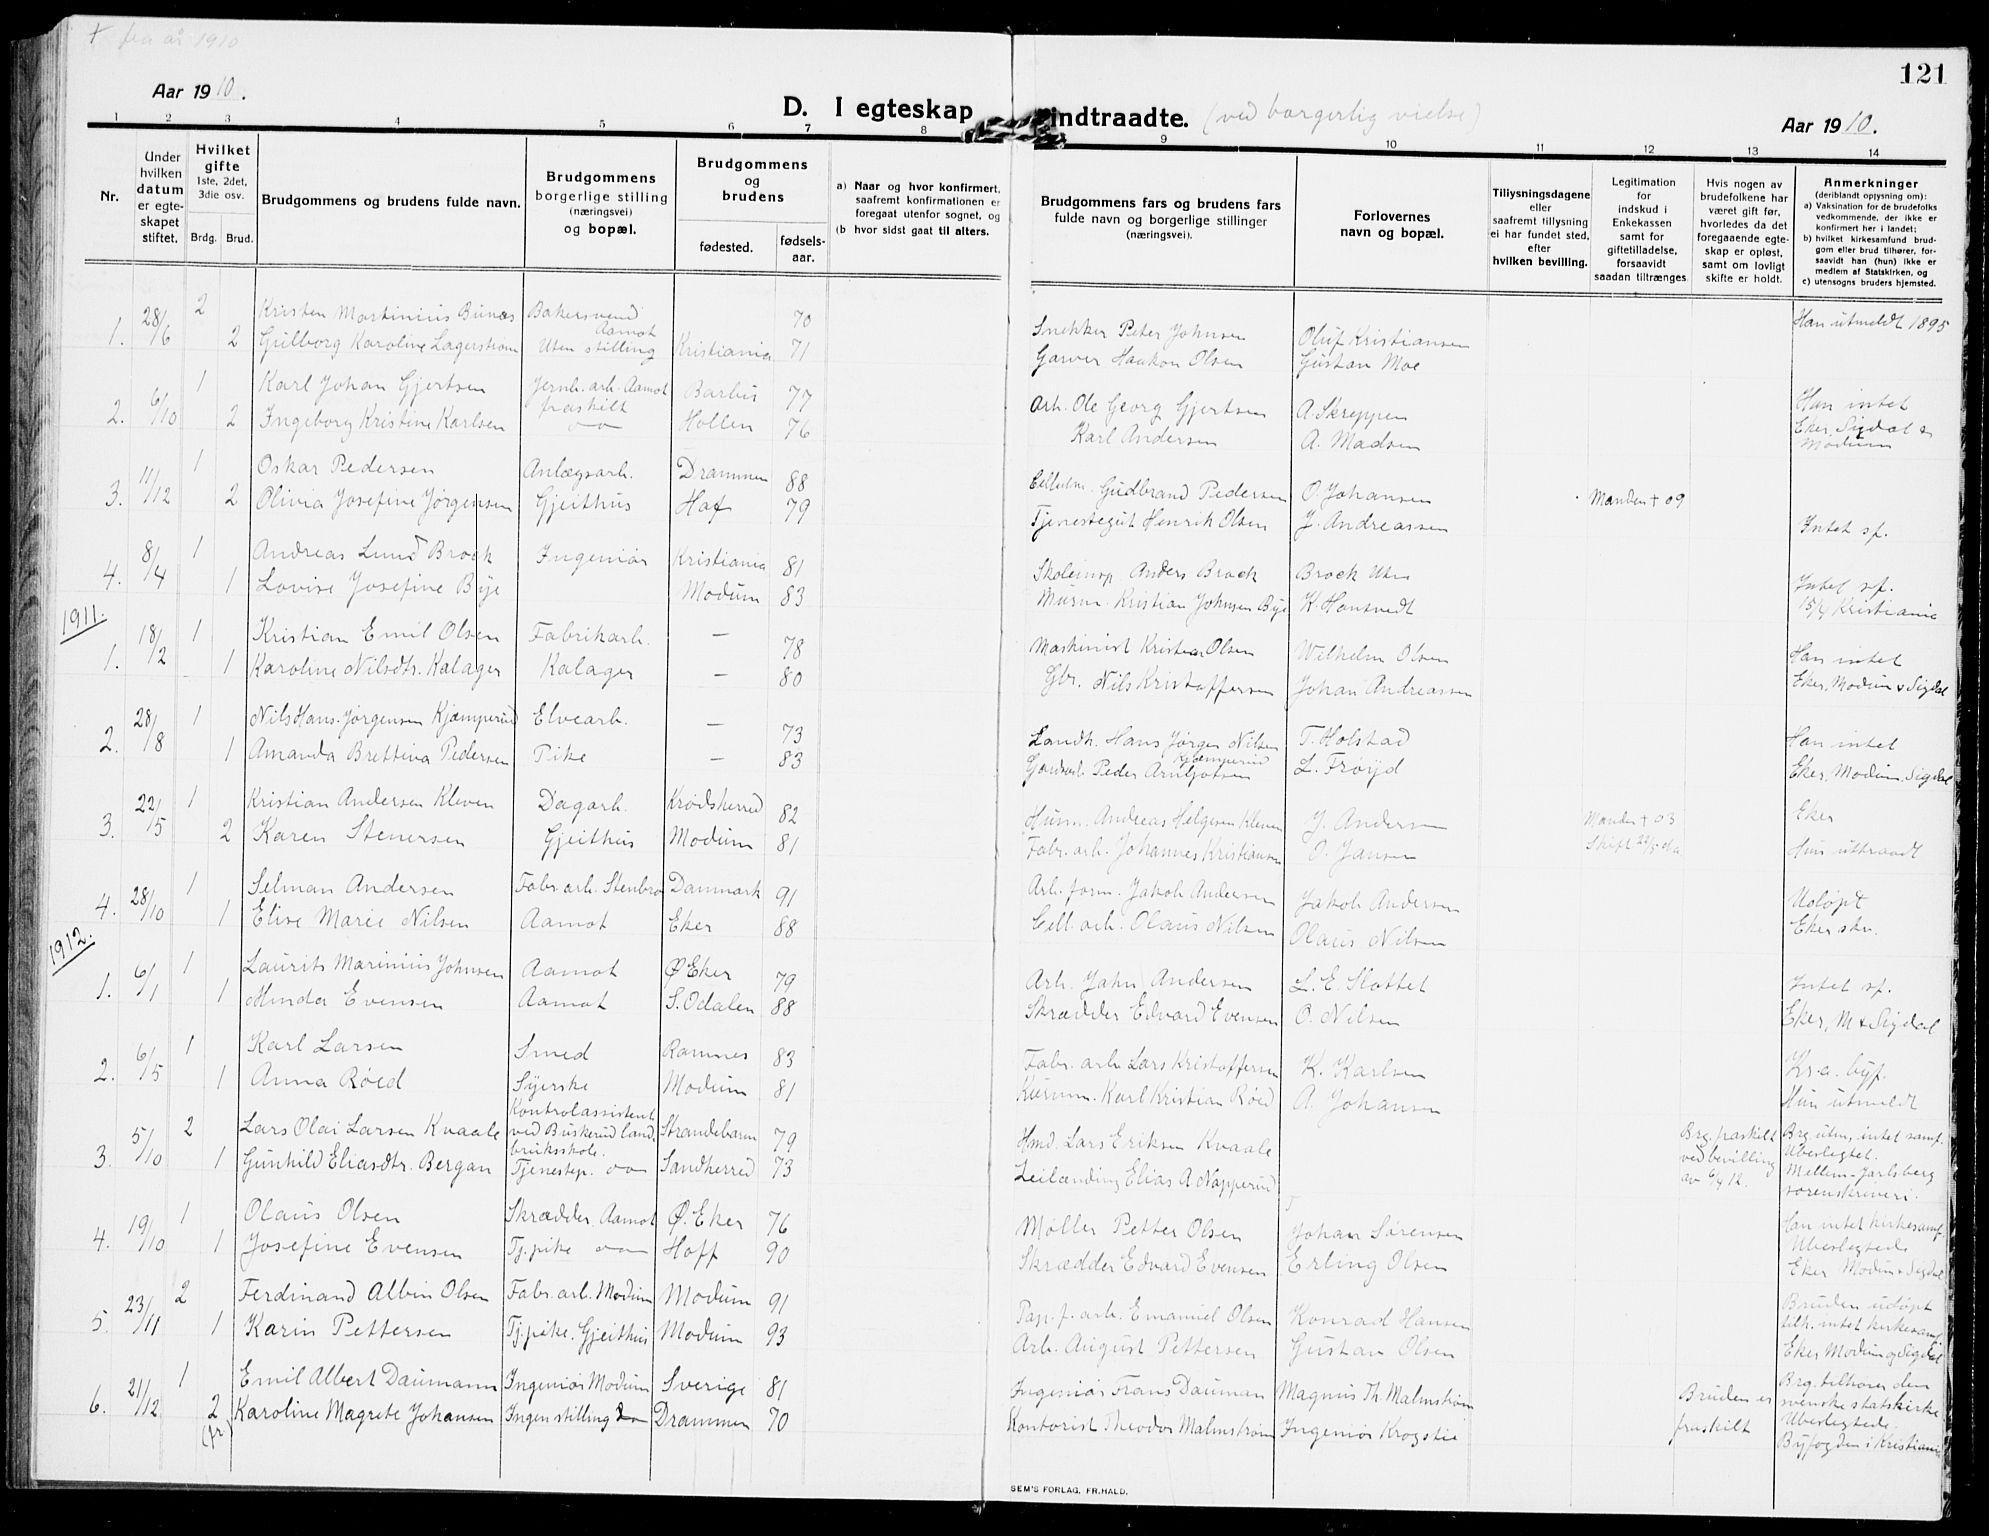 + fra år 1910
121
Aar 1910.
D. I egteskap indtraadte. (ved borgerlig vielse)
Aar 1910.
1 2 3 4 5 6 7 8 9 10 11 12 13 14
Nr.
Under hvilken datum er egteskapet stiftet.
Hvilket gifte 1ste, 2det, 3die osv.
Brdg. Brud.
Brudgommens og brudens fulde navn.
Brudgommens borgerlige stilling (næringsvei) og bopæl.
Brudgommens og brudens
fødested.
fødselsaar.
a) Naar og hvor konfirmert, saafremt konfirmationen er foregaat utenfor sognet, og
(b hvor sidst gaat til alters.
Brudgommens fars og brudens fars fulde navn og borgerlige stillinger (næringsvei).
Forlovernes navn og bopæl.
Tillysningsdagene eller saafremt tillysning ei har fundet sted, efter hvilken bevilling.
Legitimation for indskud i Enkekassen samt for giftetilladelse, forsaavidt saadan tiltrænges
Hvis nogen av brudefolkene har været gift før, hvorledes da det foregaaende egteskap er opløst, samt om lovligt skifte er holdt.
Anmerkninger
(deriblandt opysning om):
a) Vaksination for de brudefolks vedkommende, der ikke er konfirmert her i landet;
b) hvilket kirkesamfund brudgom eller brud tilhører, forsaavidt han (hun) ikke er medlem af Statskirken, og
c) utensogns bruders hjemsted.
1. 28/6 2 Kristen Martinius Bunæs Bakersvend Aamot 70 Snekker Peter Johnsen Oluf Kristiansen Han utmeldt 1895
2 Gulborg Karoline Lagerstrøm Uten stilling Kristiania 71 Garver Haakon Olsen Gustav Moe
2. 6/10 1 Karl Johan Gjertsen Jernb. arb. Aamot Barbu 77 Arb. Ole Georg Gjertsen A. Skreppen Han intet
2 Ingeborg Kristine Karlsen fraskilt Hollen 76 Karl Andersen A. Madsen Eker, Sigdal & Modum
3. 11/12 1 Oskar Pedersen Anlægsarb. Drammen 88 Gudbrand Pedersen O. Johansen Manden + 09
2 Olivia Josefine Jørgensen Gjeithus Hof 79 Tjenestegut Henrik Olsen J. Andreassen Intet sf.
4. 8/4 1 Andreas Lund Brock Ingeniør Kristiania 81 Skoleinsp. Anders Brock Brock Utne Intet sf.
1 Lovise Josefine Bye Modum 83 Murm. Kristian Johnsen Bye K. Hansvedt 15/4 Kristiania
1911.
1. 18/2 1 Kristian Emil Olsen Fabrikarb. — 78 Maskinist Kristian Olsen Wilhelm Olsen Han intet
1 Karoline Nilsdtr. Kalager Kalager — 80 Gbr. Nils Kristoffersen Johan Andreassen Eker, Modum & Sigdal
2. 28/8 1 Nils Hans Jørgensen Kjæmperud Elvearb. — 73 Landh. Hans Jørgen Nilsen Kjæmperud T. Holstad Han intet
1 Amanda Brettina Pedersen Pike — 83 Peder Arnljotsen L. Frøyd Eker, Modum, Sigdal
3. 22/5 1 Kristian Andersen Kleven Dagarb. Krødsherred 82 Husm. Andreas Helgesen Kleven J. Andersen Manden + 03 Eker
2 Karen Stenersen Gjeithus Modum 81 Fabr. arb. Johannes Kristiansen O. Jansen Skift Hun uttraadt
4. 28/10 1 Selman Andersen Fabr. arb. Stenbro Danmark 91 Arb. form. Jakob Andersen Jakob Andersen Udøpt
1 Elise Marie Nilsen Aamot Eker 88 Cell. arb. Olaus Nilsen Olaus Nilsen Eker skr.
1912.
1. 6/1 1 Laurits Marinius Johnsen Aamot Ø. Eker 79 Arb. John Andersen L. E. Slottet Intet sf.
1 Minda Evensen Aamot S. Odalen 88 Skrædder Edvard Evensen O. Nilsen Eker, M & Sigdal
2. 6/5 1 Karl Larsen Smed Ramnes 83 Fabr. arb. Lars Kristoffersen K. Karlsen Kr.a. byf.
1 Anna Røed Syerske Modum 81 Karl Kristian Røed A. Johansen Hun utmeldt
3. 5/10 2 Lars Olai Larsen Kvaale Kontrolassistent ved Buskerud landbruksskole. Strandebarm 79 Hmd. Lars Eriksen Kvaale Brg. fraskilt ved bevilling av 6/4 12. Brg. utm. intet samf. Ubeslegtet.
1 Gunhild Eliasdtr. Bergan Tjenestep. Sandherred 73 Leilænding Elias A Napperud Mellem-Jarlsberg sorenskriveri.
4. 19/10 1 Olaus Olsen Skrædder. Aamot Ø. Eker 76 Møller Petter Olsen Johan Sørensen Han intet kirkesamf.
1 Josefine Evensen Tj. pike Hoff 90 Skrædder Edvard Evensen Erling Olsen Ubeslegtede Eker Modum & Sigdal
5. 23/11 2 Ferdinand Albin Olsen Fabr. arb. Modum Modum 91 Pap. f. arb. Emanuel Olsen Konrad Hansen Bruden udøpt
1 Karin Pettersen Tj. pike. Gjeithus Modum 93 Arb. August Pettersen Gustav Olsen tilh. intet kirkesamf. Eker Modum og Sigdal
6. 21/12 1 Emil Albert Daumann Ingeniør Modum Sverige 81 Ingeniør Frans Dauman Magnus Th. Malmstrøm Bruden er fraskilt Brg. tilhører den svenske statskirke
2 (fr) Karoline Magrete Johansen Ingen stilling Drammen 70 Kontorist Theodor Malmstrøm Ingeniør Krogstie Ubeslegtede. Byfogden i Kristiania
SEM'S FORLAG, FR. HALD.